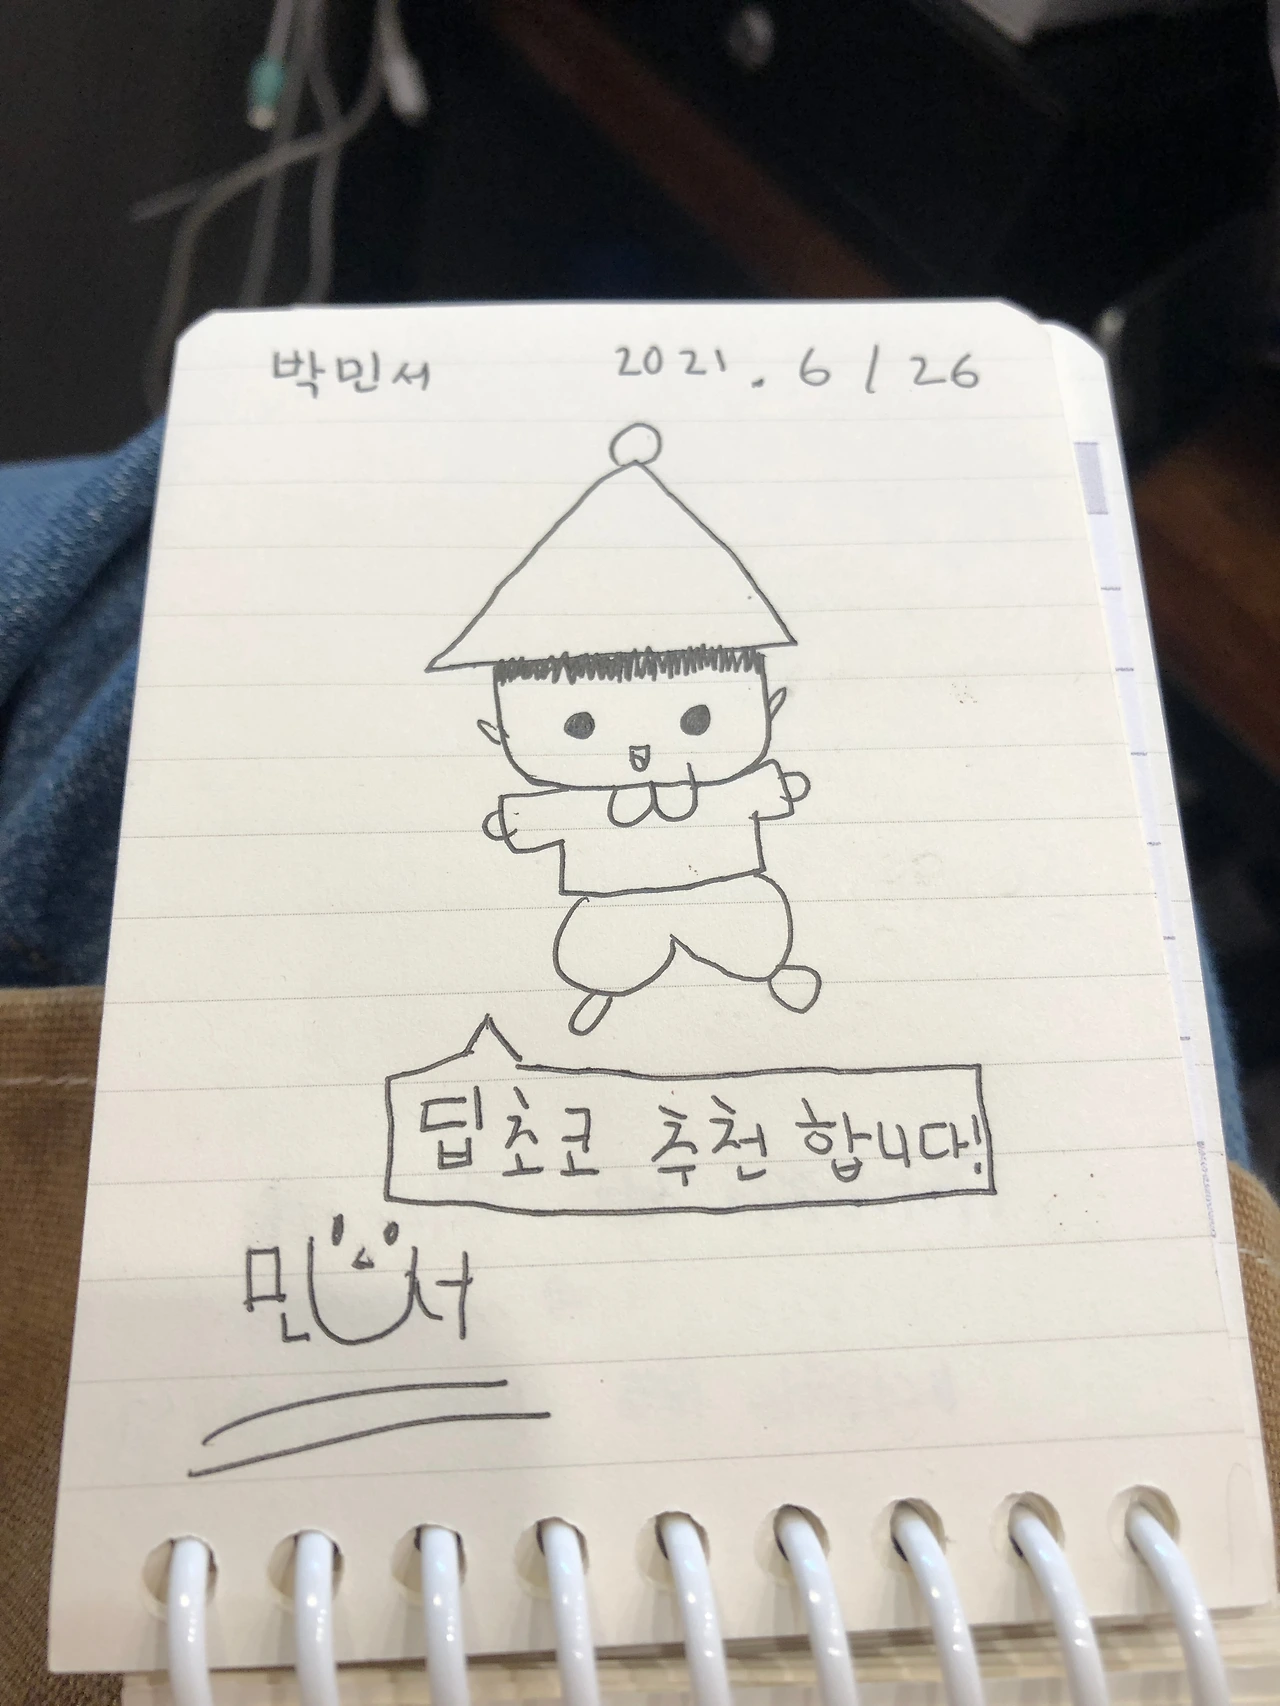 박민서 2021. 6/26
딥초코 추천 합니다!
민서